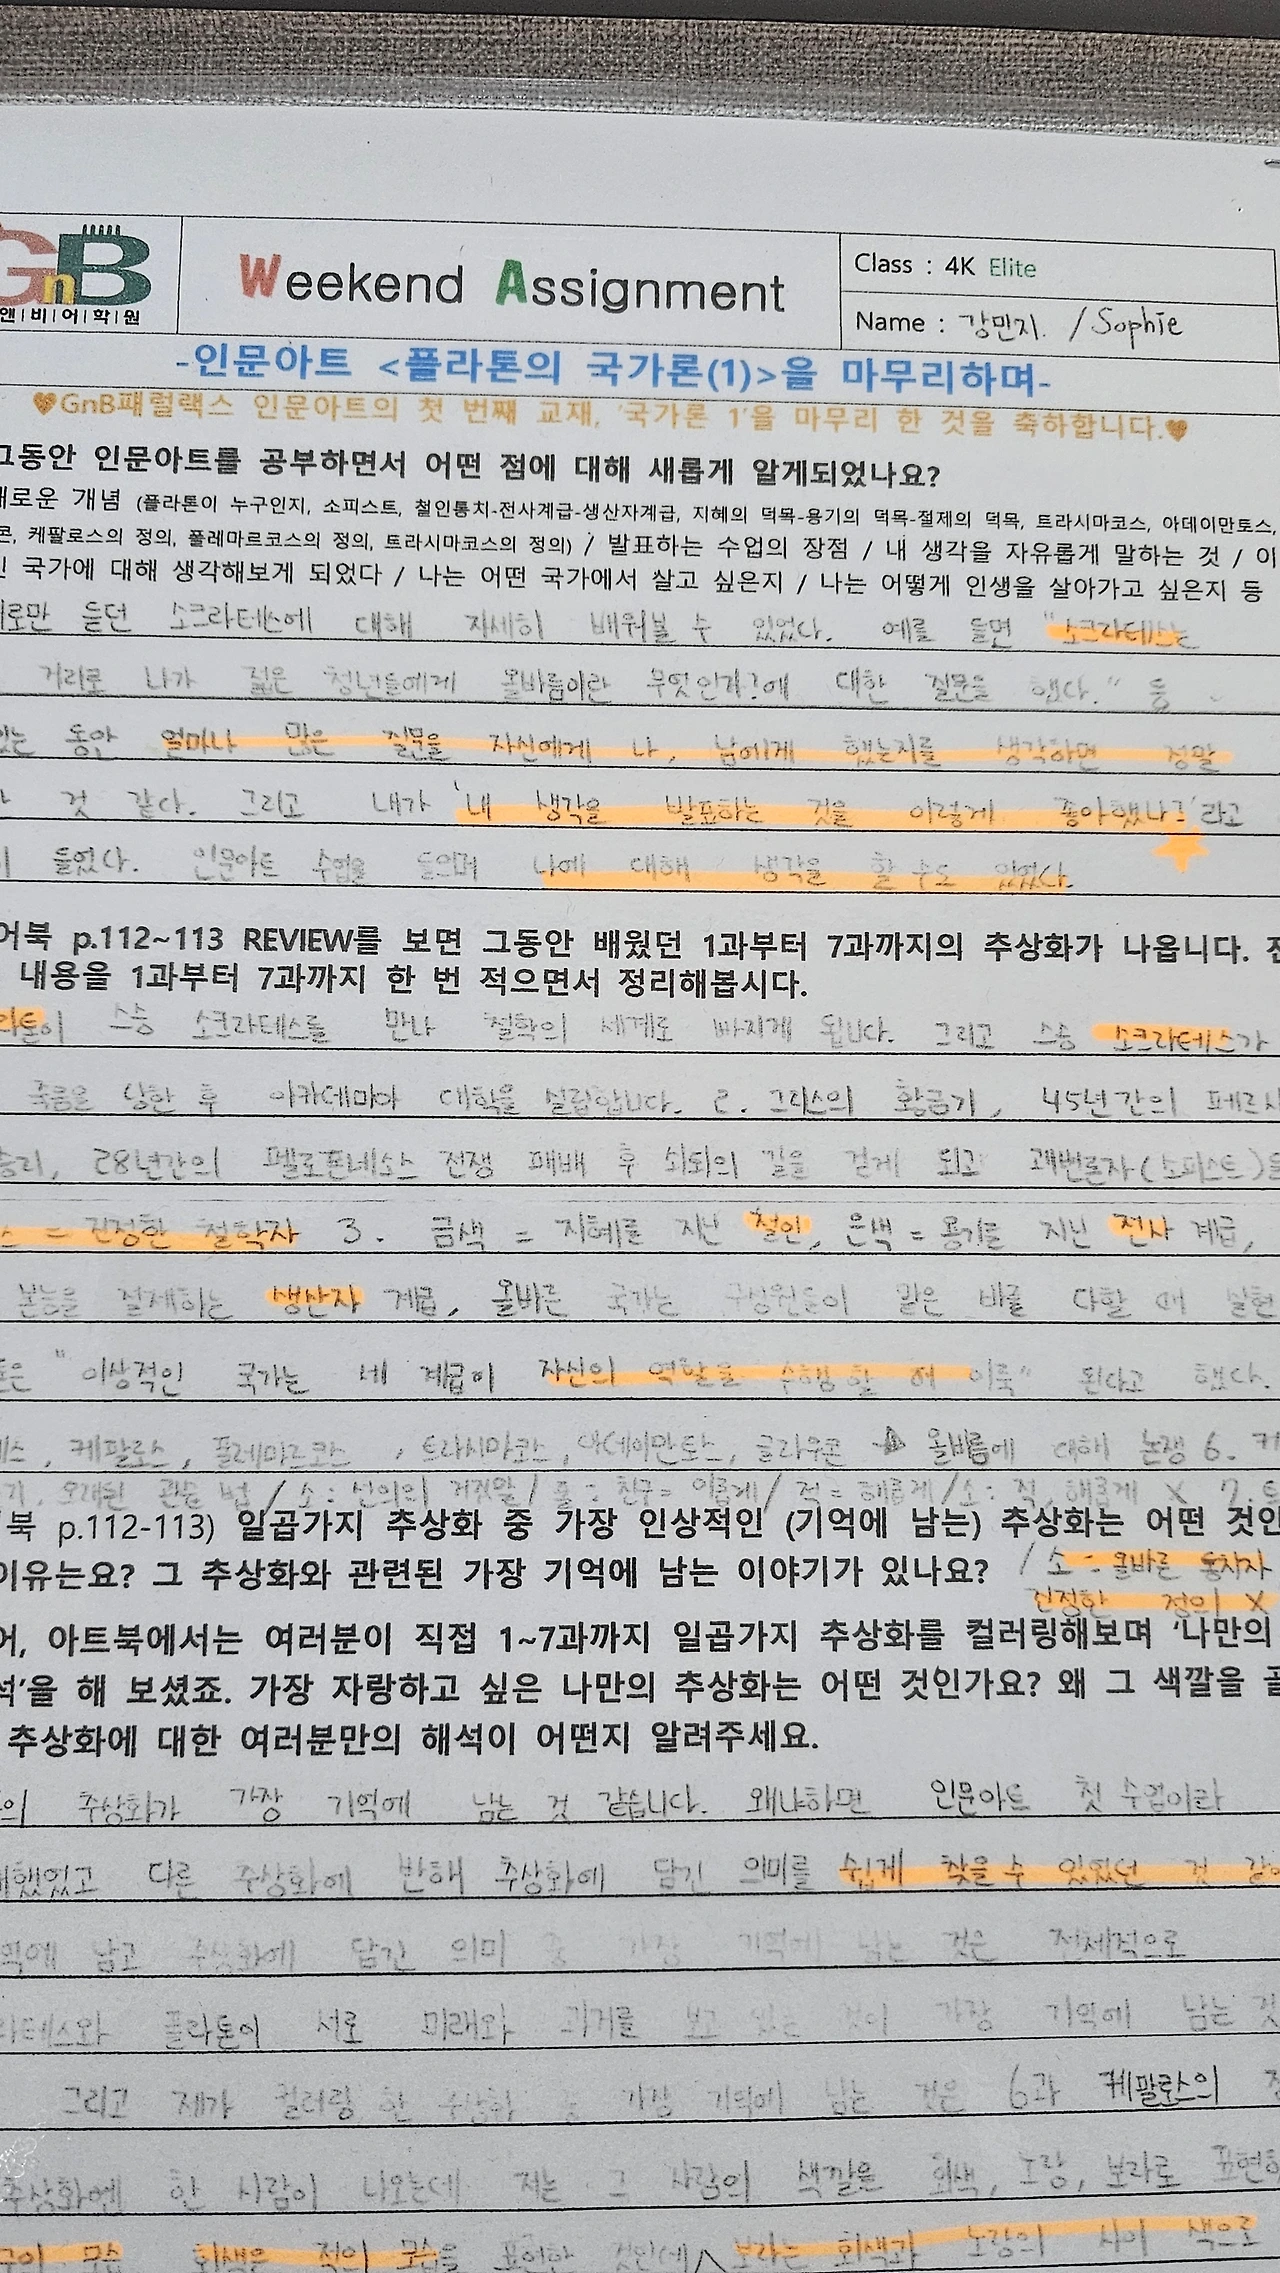 GnB
앤|비|어|학|원
Weekend Assignment
Class : 4K Elite
Name : 강민지. /Sophie
-인문아트 <플라톤의 국가론(1)>을 마무리하며-
♥GnB패럴랙스 인문아트의 첫 번째 교재, '국가론 1'을 마무리 한 것을 축하합니다.♥
그동안 인문아트를 공부하면서 어떤 점에 대해 새롭게 알게되었나요?
새로운 개념 (플라톤이 누구인지, 소피스트, 철인통치-전사계급-생산자계급, 지혜의 덕목-용기의 덕목-절제의 덕목, 트라시마코스, 아데이만토스,
콘, 케팔로스의 정의, 폴레마르코스의 정의, 트라시마코스의 정의) / 발표하는 수업의 장점 / 내 생각을 자유롭게 말하는 것 / 이
국가에 대해 생각해보게 되었다 / 나는 어떤 국가에서 살고 싶은지 / 나는 어떻게 인생을 살아가고 싶은지 등
로만 듣던 소크라테스에 대해 자세히 배워볼 수 있었다. 예를 들면 "소크라테스는
거리로 나가 젊은 청년들에게 올바름이란 무엇인가?에 대한 질문을 했다." 등
있는 동안 얼마나 많은 질문을 자신에게 나, 남에게 했는지를 생각하면 정말
것 같다. 그리고 내가 '내 생각을 발표하는 것을 이렇게 좋아했나?'라고
들었다. 인문아트 수업을 들으며 나에 대해 생각을 할 수도 있었다.
어북 p.112~113 REVIEW를 보면 그동안 배웠던 1과부터 7과까지의 추상화가 나옵니다.
내용을 1과부터 7과까지 한 번 적으면서 정리해봅시다.
라톤이 스승 소크라테스를 만나 철학의 세계로 빠지게 됩니다. 그리고 스승 소크라테스가
죽음을 당한 후 아카데미아 대학을 설립합니다. 2. 그리스의 황금기, 45년간의 페르시
승리, 28년간의 펠로폰네소스 전쟁 패배 후 쇠퇴의 길을 걷게 되고 궤변론자(소피스트)을
스 = 진정한 철학자 3. 금색 = 지혜를 지닌 철인, 은색 = 용기를 지닌 전사 계급,
본능을 절제하는 생산자 계급, 올바른 국가는 구성원들이 맡은 바를 다할 때 실현
톤은 "이상적인 국가는 세 계급이 자신의 역할을 수행 할 때 이룩" 된다고 했다.
테스, 케팔로스, 폴레마르코스, 트라시마코스, 아데이만토스, 글라우콘 → 올바름에 대해 논쟁 6. 케
기, 오래된 관습 법 / 소 : 선의의 거짓말 / 폴 : 친구= 이롭게 / 적 = 해롭게 / 소 : 적, 해롭게 X 7. 트
북 p.112-113) 일곱가지 추상화 중 가장 인상적인 (기억에 남는) 추상화는 어떤 것인
이유는요? 그 추상화와 관련된 가장 기억에 남는 이야기가 있나요? / 소 : 올바른 통치자
진정한 정의 X
어, 아트북에서는 여러분이 직접 1~7과까지 일곱가지 추상화를 컬러링해보며 '나만의
석'을 해 보셨죠. 가장 자랑하고 싶은 나만의 추상화는 어떤 것인가요? 왜 그 색깔을 골
추상화에 대한 여러분만의 해석이 어떤지 알려주세요.
의 추상화가 가장 기억에 남는 것 같습니다. 왜냐하면 인문아트 첫 수업이라
했었고 다른 추상화에 반해 추상화에 담긴 의미를 쉽게 찾을 수 있었던 것 같
억에 남고 추상화에 담긴 의미 중 가장 기억에 남는 것은 전체적으로
라테스와 플라톤이 서로 미래와 과거를 보고 있는 것이 가장 기억에 남는 것
그리고 제가 컬러링 한 추상화 중 가장 기억에 남는 것은 6과 케팔로스의
추상화엔 한 사람이 나오는데 저는 그 사람의 색깔을 회색, 노랑, 보라로 표현하
구의 모습 회색은 적의 모습을 표현한 것인데 보라는 회색과 노랑의 사이 색으로